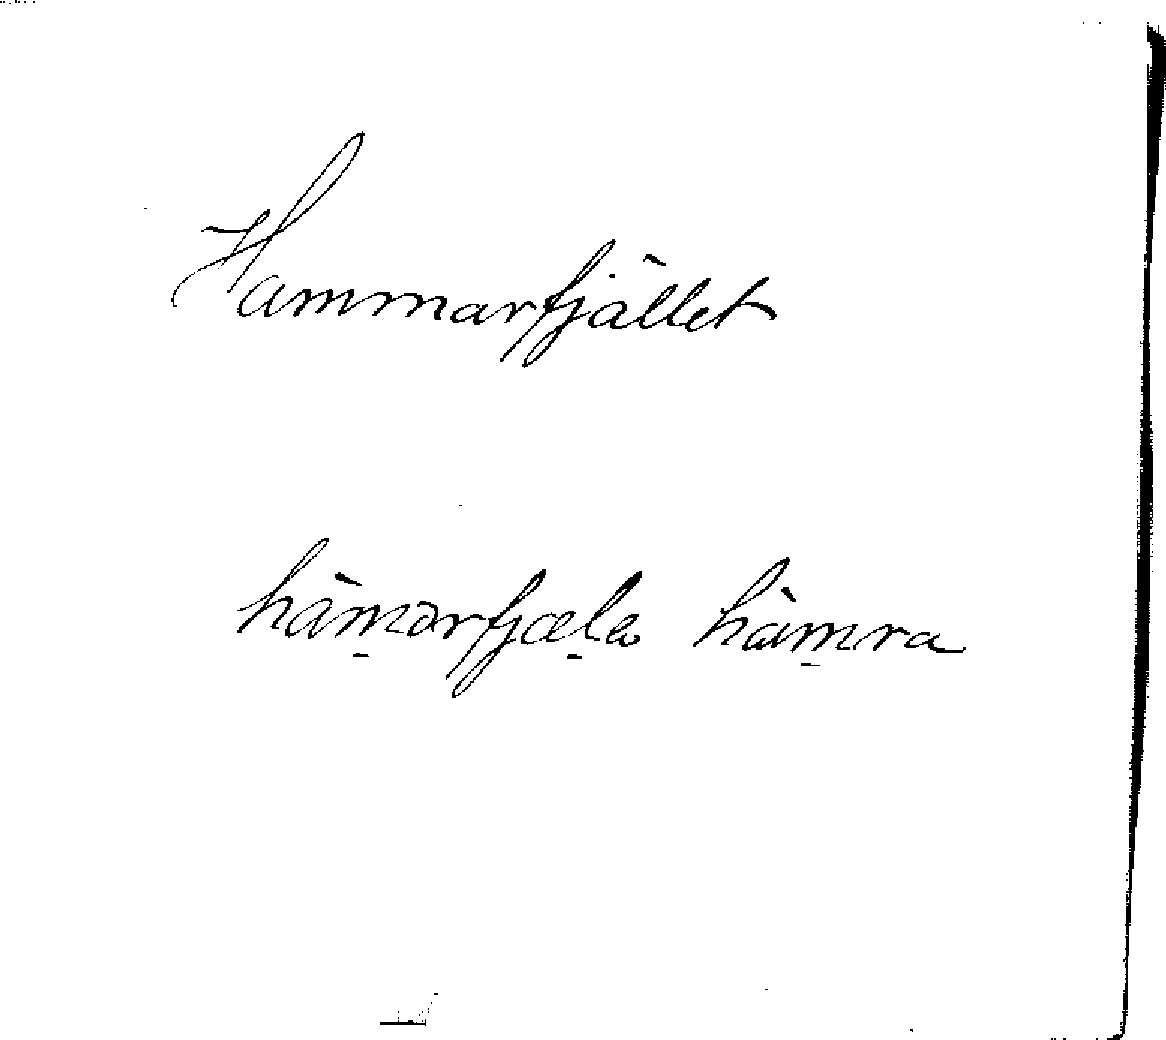 Hammarfjället
hàm̱ərfjæḻə hàm̱ra